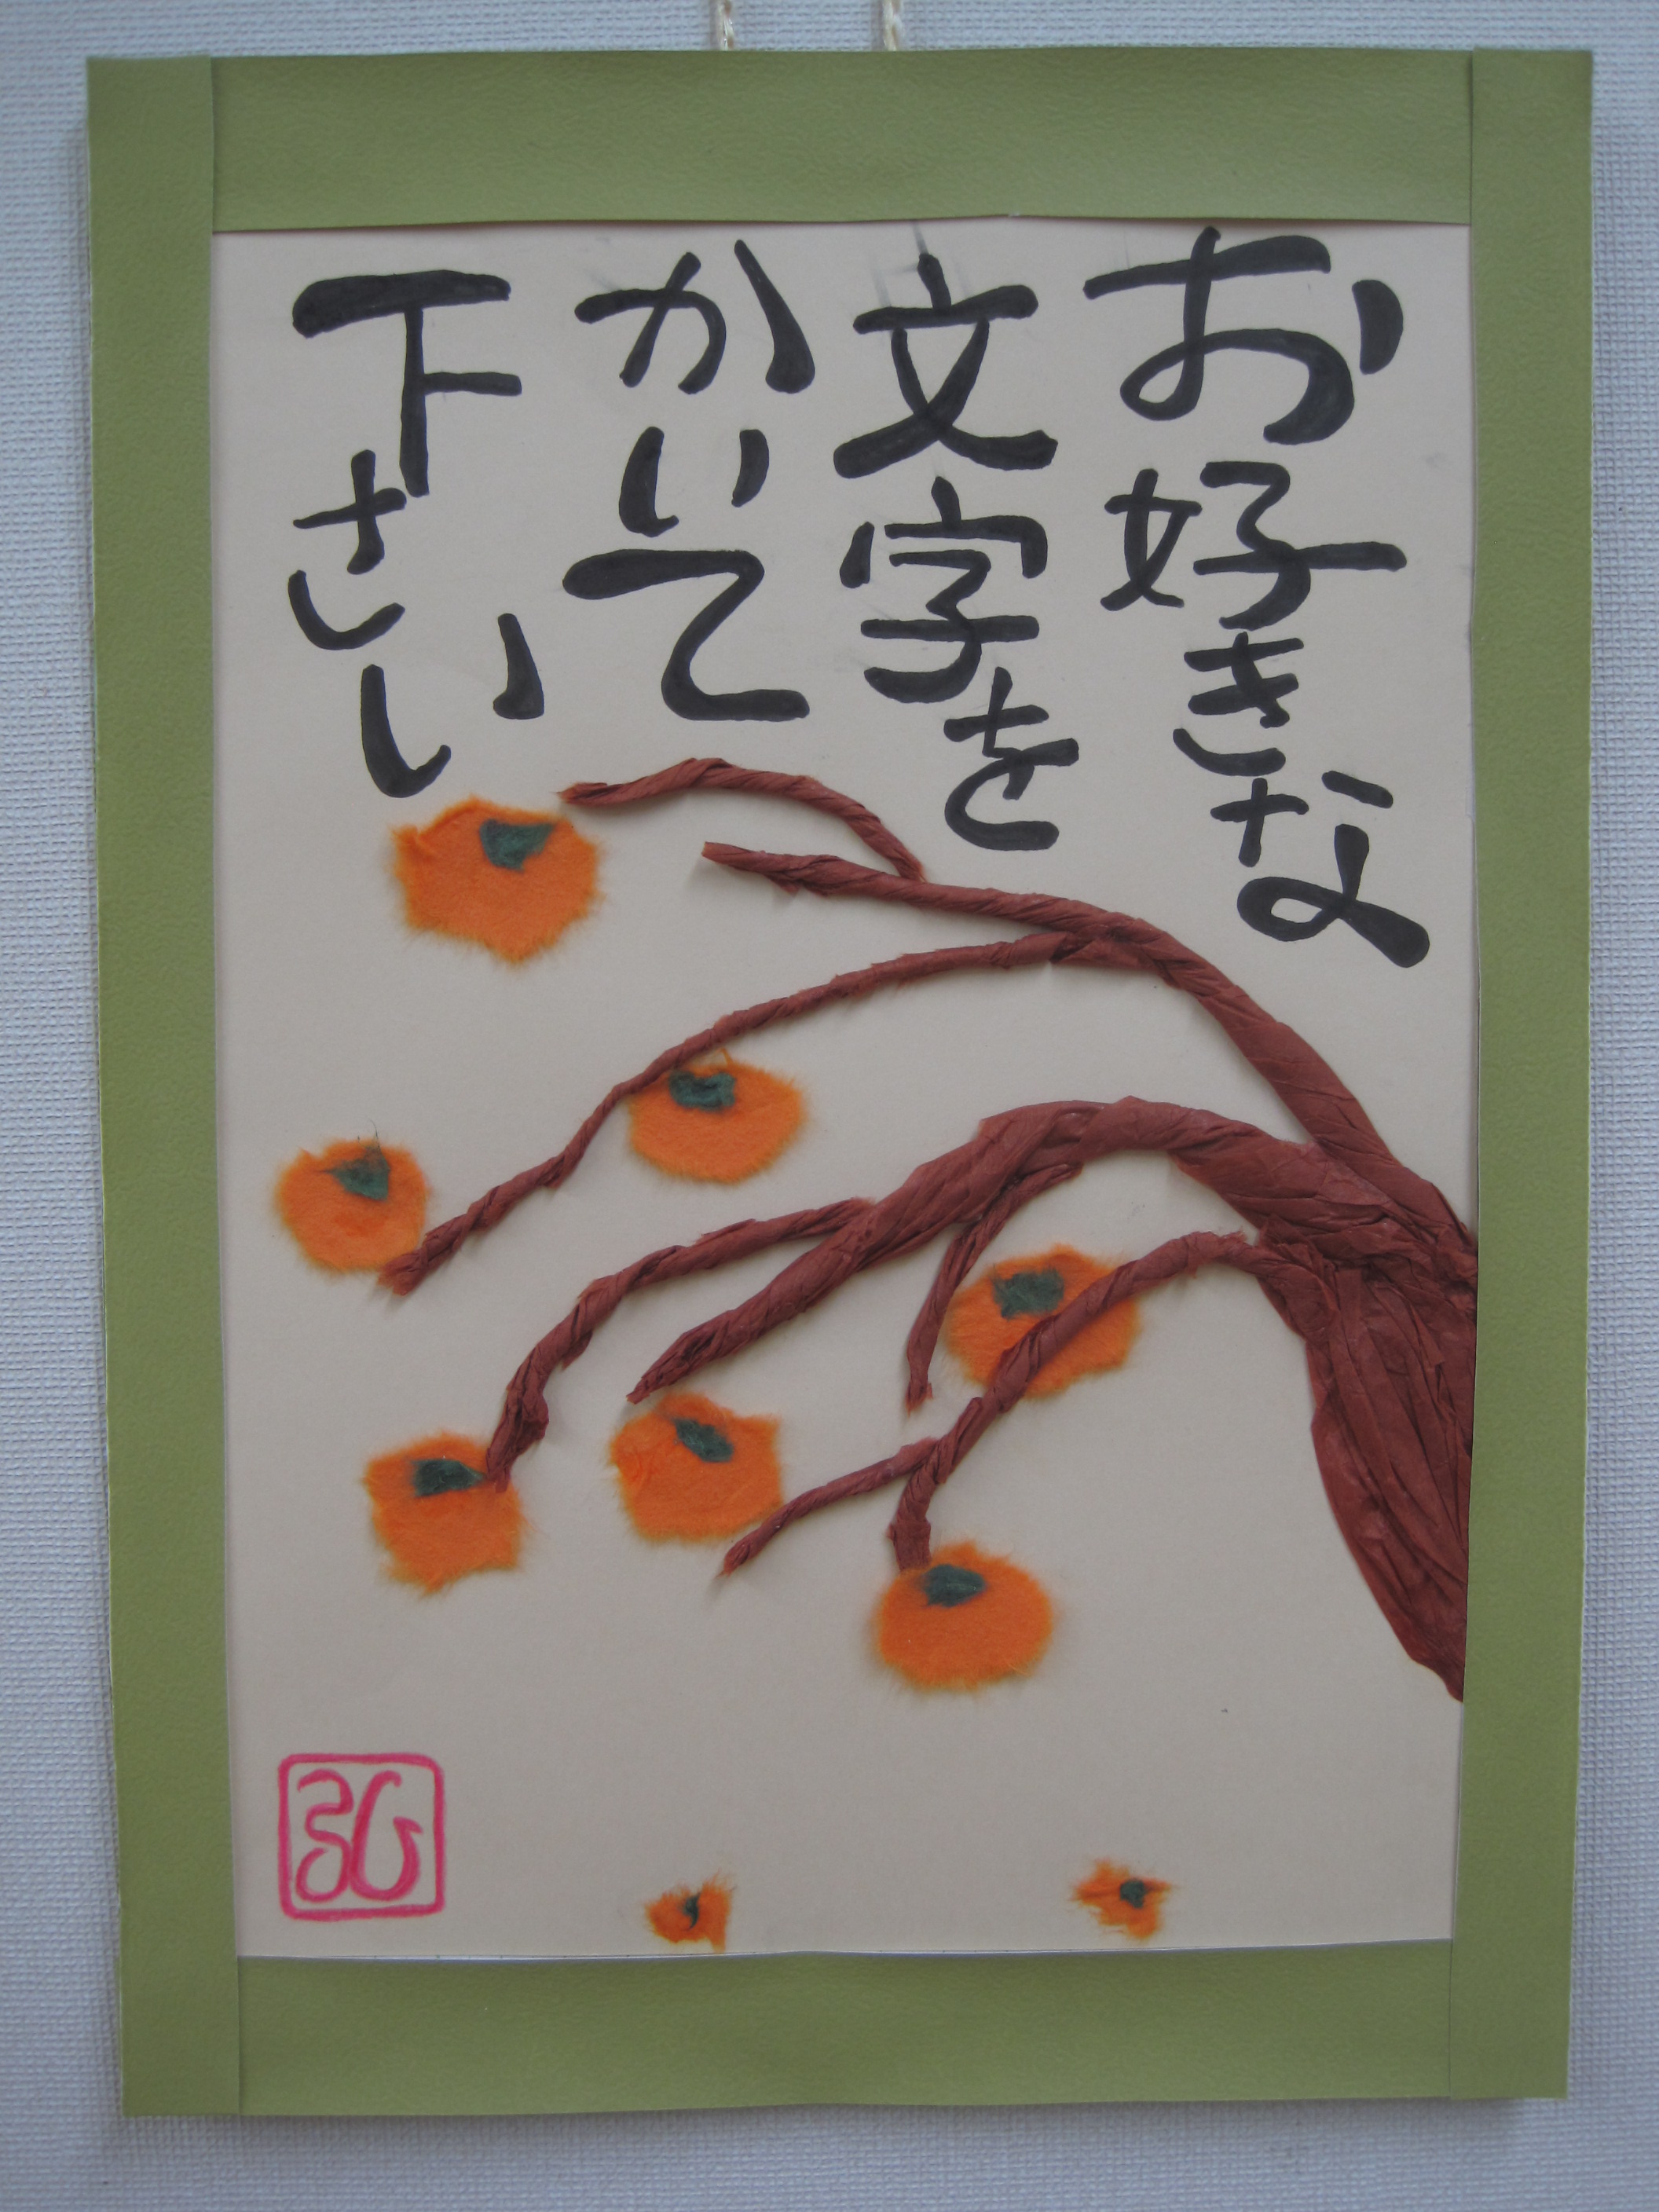 お好きな
文字を
かいて
下さい